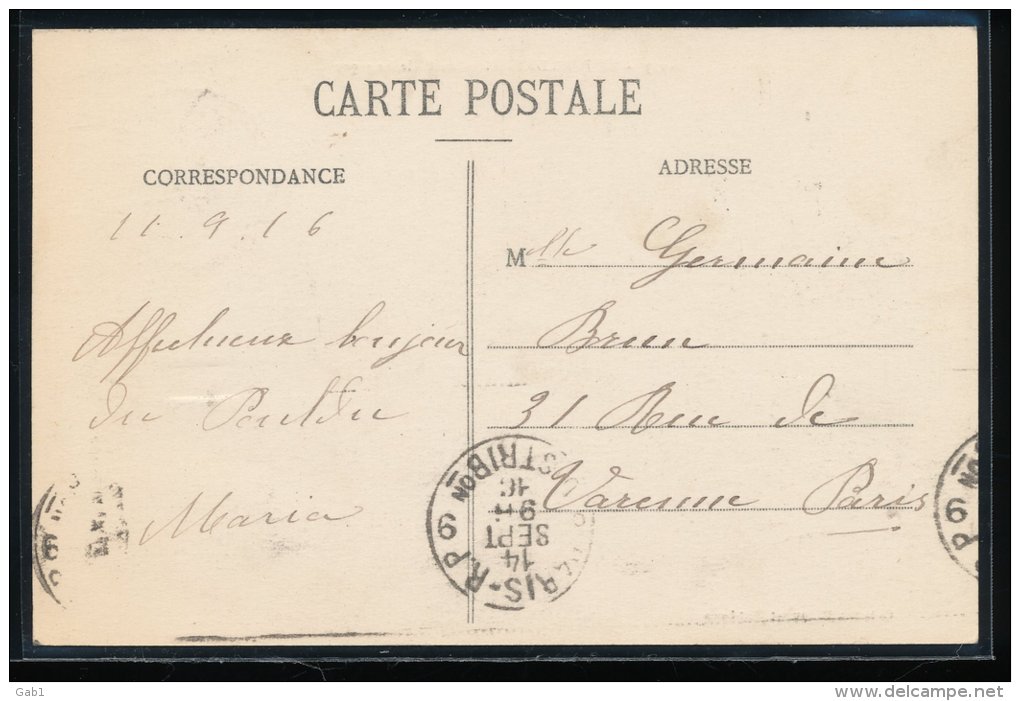 CARTE POSTALE
CORRESPONDANCE
11. 9. 16
Affectueux bonjour
du Pouldu
Maria
ADRESSE
Mlle Germaine
Brun
31 Rue de
Varenne Paris
PARIS-R.P 6 DISTRIBON
14
SEPT
9H
16
P 6 ON
Gab1
www.delcampe.net